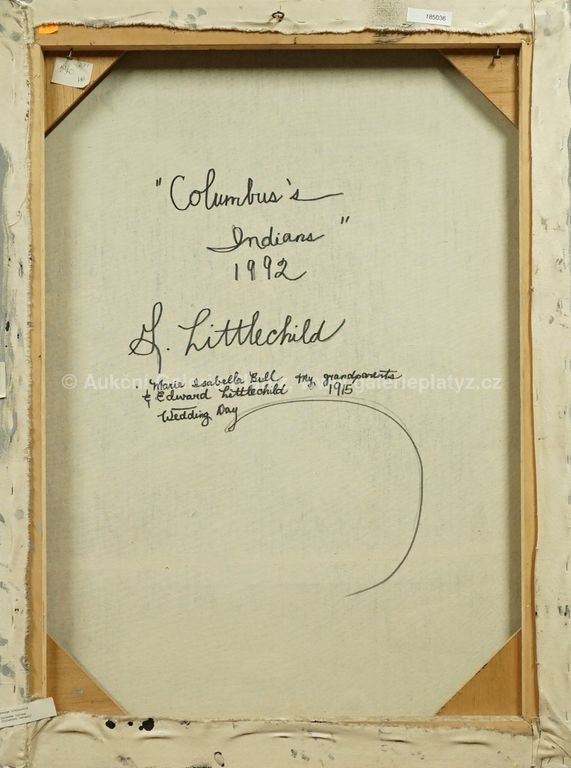 185036
"Columbus's
Indians"
1992
G. Littlechild
Marie Isabella Bull My grandparents
& Edward Littlechild 1915
Wedding Day
© Aukční galerieplatyz.cz